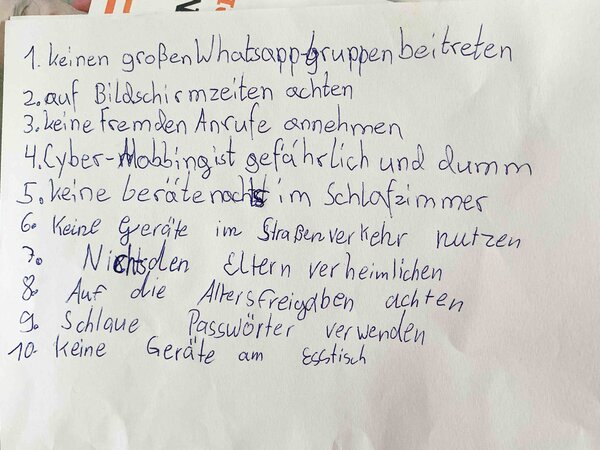 1. keinen großen Whatsapp-Gruppen beitreten
2. auf Bildschirmzeiten achten
3. keine Fremden Anrufe annehmen
4. Cyber-Mobbing ist gefährlich und dumm
5. keine beräte nachts im Schlafzimmer
6. Keine Geräte im Straßenverkehr nutzen
7. Nichts den Eltern verheimlichen
8. Auf die Altersfreigaben achten
9. Schlaue Passwörter verwenden
10. Keine Geräte am Esstisch